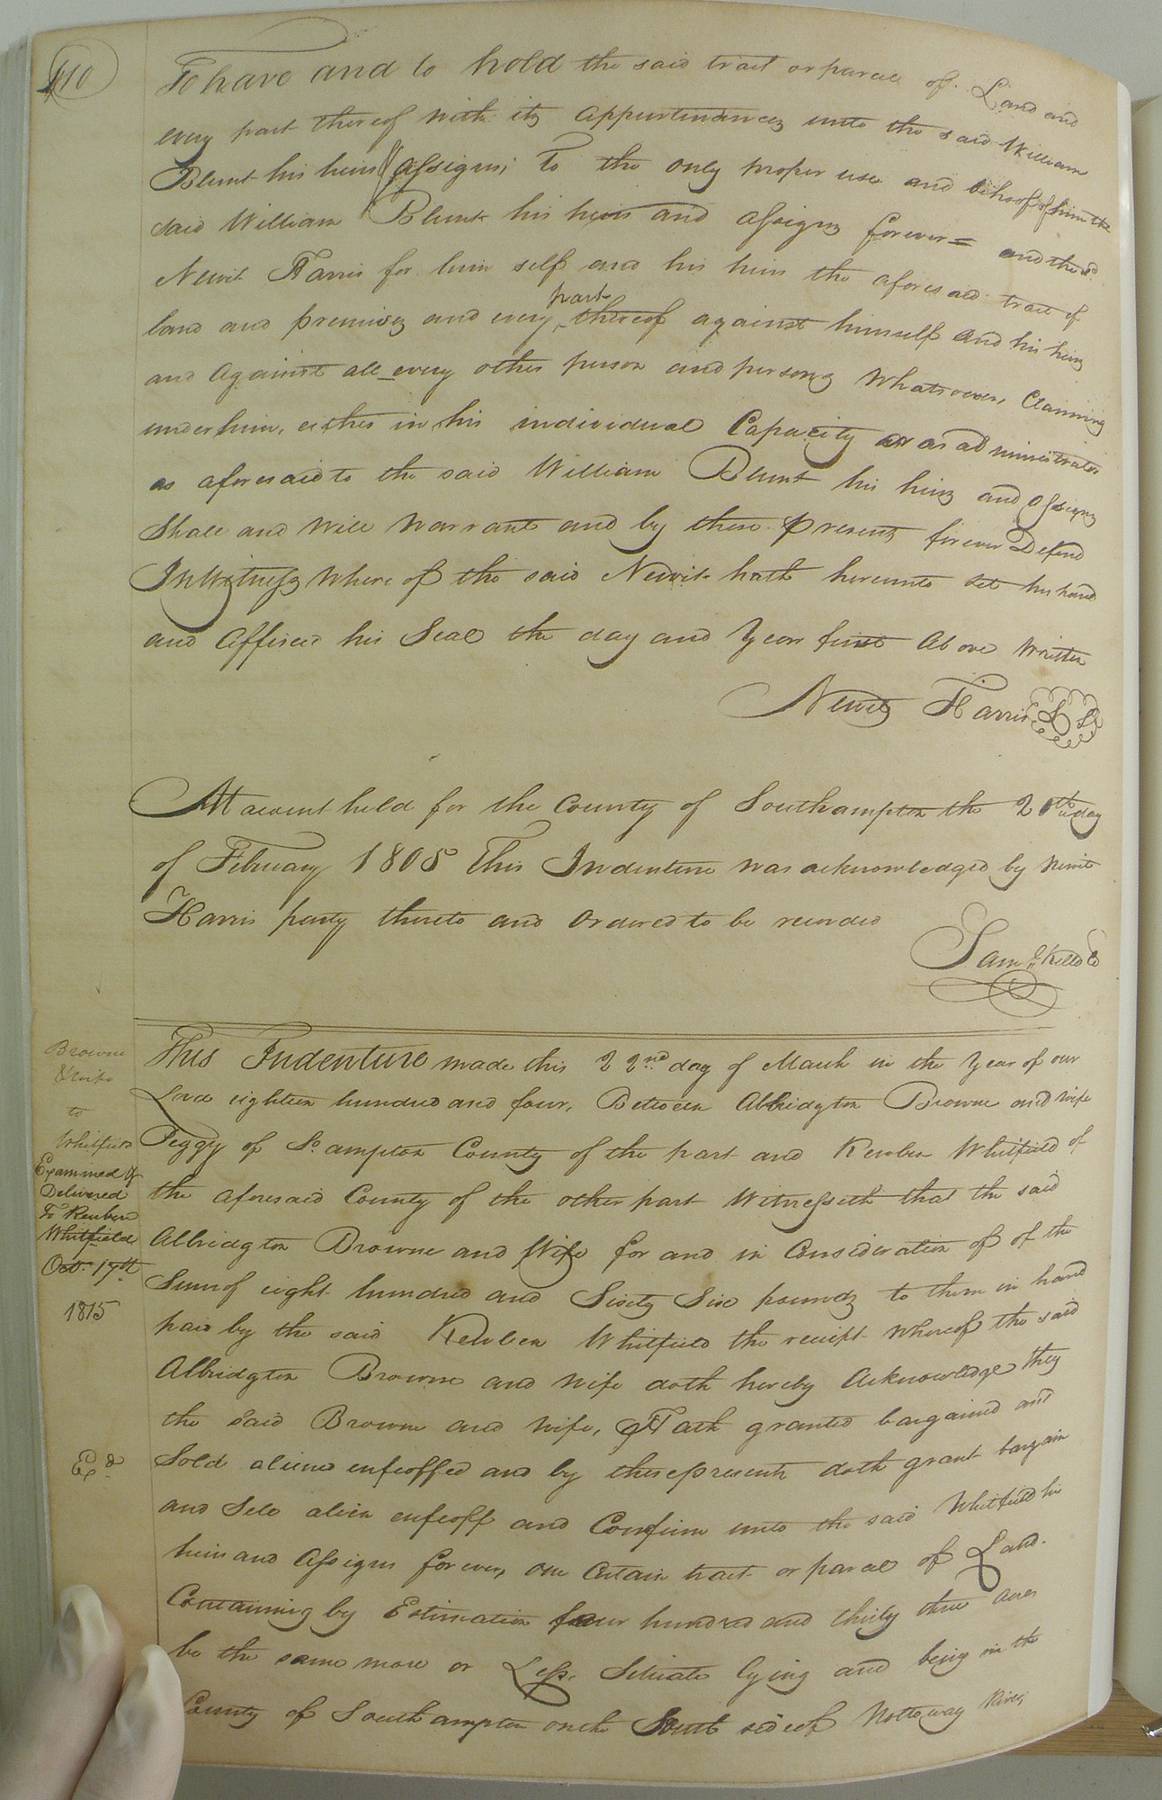 410
To have and to hold the said tract or parcel of Land and
every part thereof with its appurtenances unto the said William
Blunt his heirs & Assigns; To the only proper use and behoof of him the
said William Blunt his heirs and assigns forever = and the sd
Newit Harris for him self and his heirs the aforesaid tract of
land and premises and every part thereof against himself and his heirs
and against all every other person and persons whatsoever, Claiming
under him, either in his individual Capacity or as administrator
as aforesaid to the said William Blunt his heirs and assigns
Shall and will warrant and by these presents forever Defend
In Witness Where of the said Newit hath hereunto set his hand
and Affixed his Seal the day and Year first Above Written
Newit Harris L S
At a court held for the County of Southampton the 20th day
of February 1805 This Indenture was acknowledged by Newit
Harris party thereto and Ordered to be recorded
Saml Kello Cl
Browne
& wife
to
Whitfield
Examined &
Delivered
To Reuben
Whitfield
Oct. 17th
1815
Exd
This Indenture made this 22nd day of March in the Year of our
Lord eighteen hundred and four, Between Albridgton Browne and wife
Peggy of So.ampton County of the part and Reuben Whitfield of
the aforesaid County of the other part Witnesseth that the said
Albridgton Browne and Wife for and in Consideration of of the
Sum of eight hundred and Sixty Six pounds to them in hand
paid by the said Reuben Whitfield the receipt whereof the said
Albridgton Browne and wife doth hereby Acknowledge they
the Said Browne and wife, Hath granted bargained and
Sold aliened enfeoffed and by these presents doth grant bargain
and Sell alien enfeoff and Confirm unto the said Whitfield his
heirs and Assigns forever, one Certain tract or parcel of Land.
Containing by Estimation four hundred and thirty three acres
be the same more or Less. Situate lying and being in the
County of Southampton on the South side of Nottoway River,